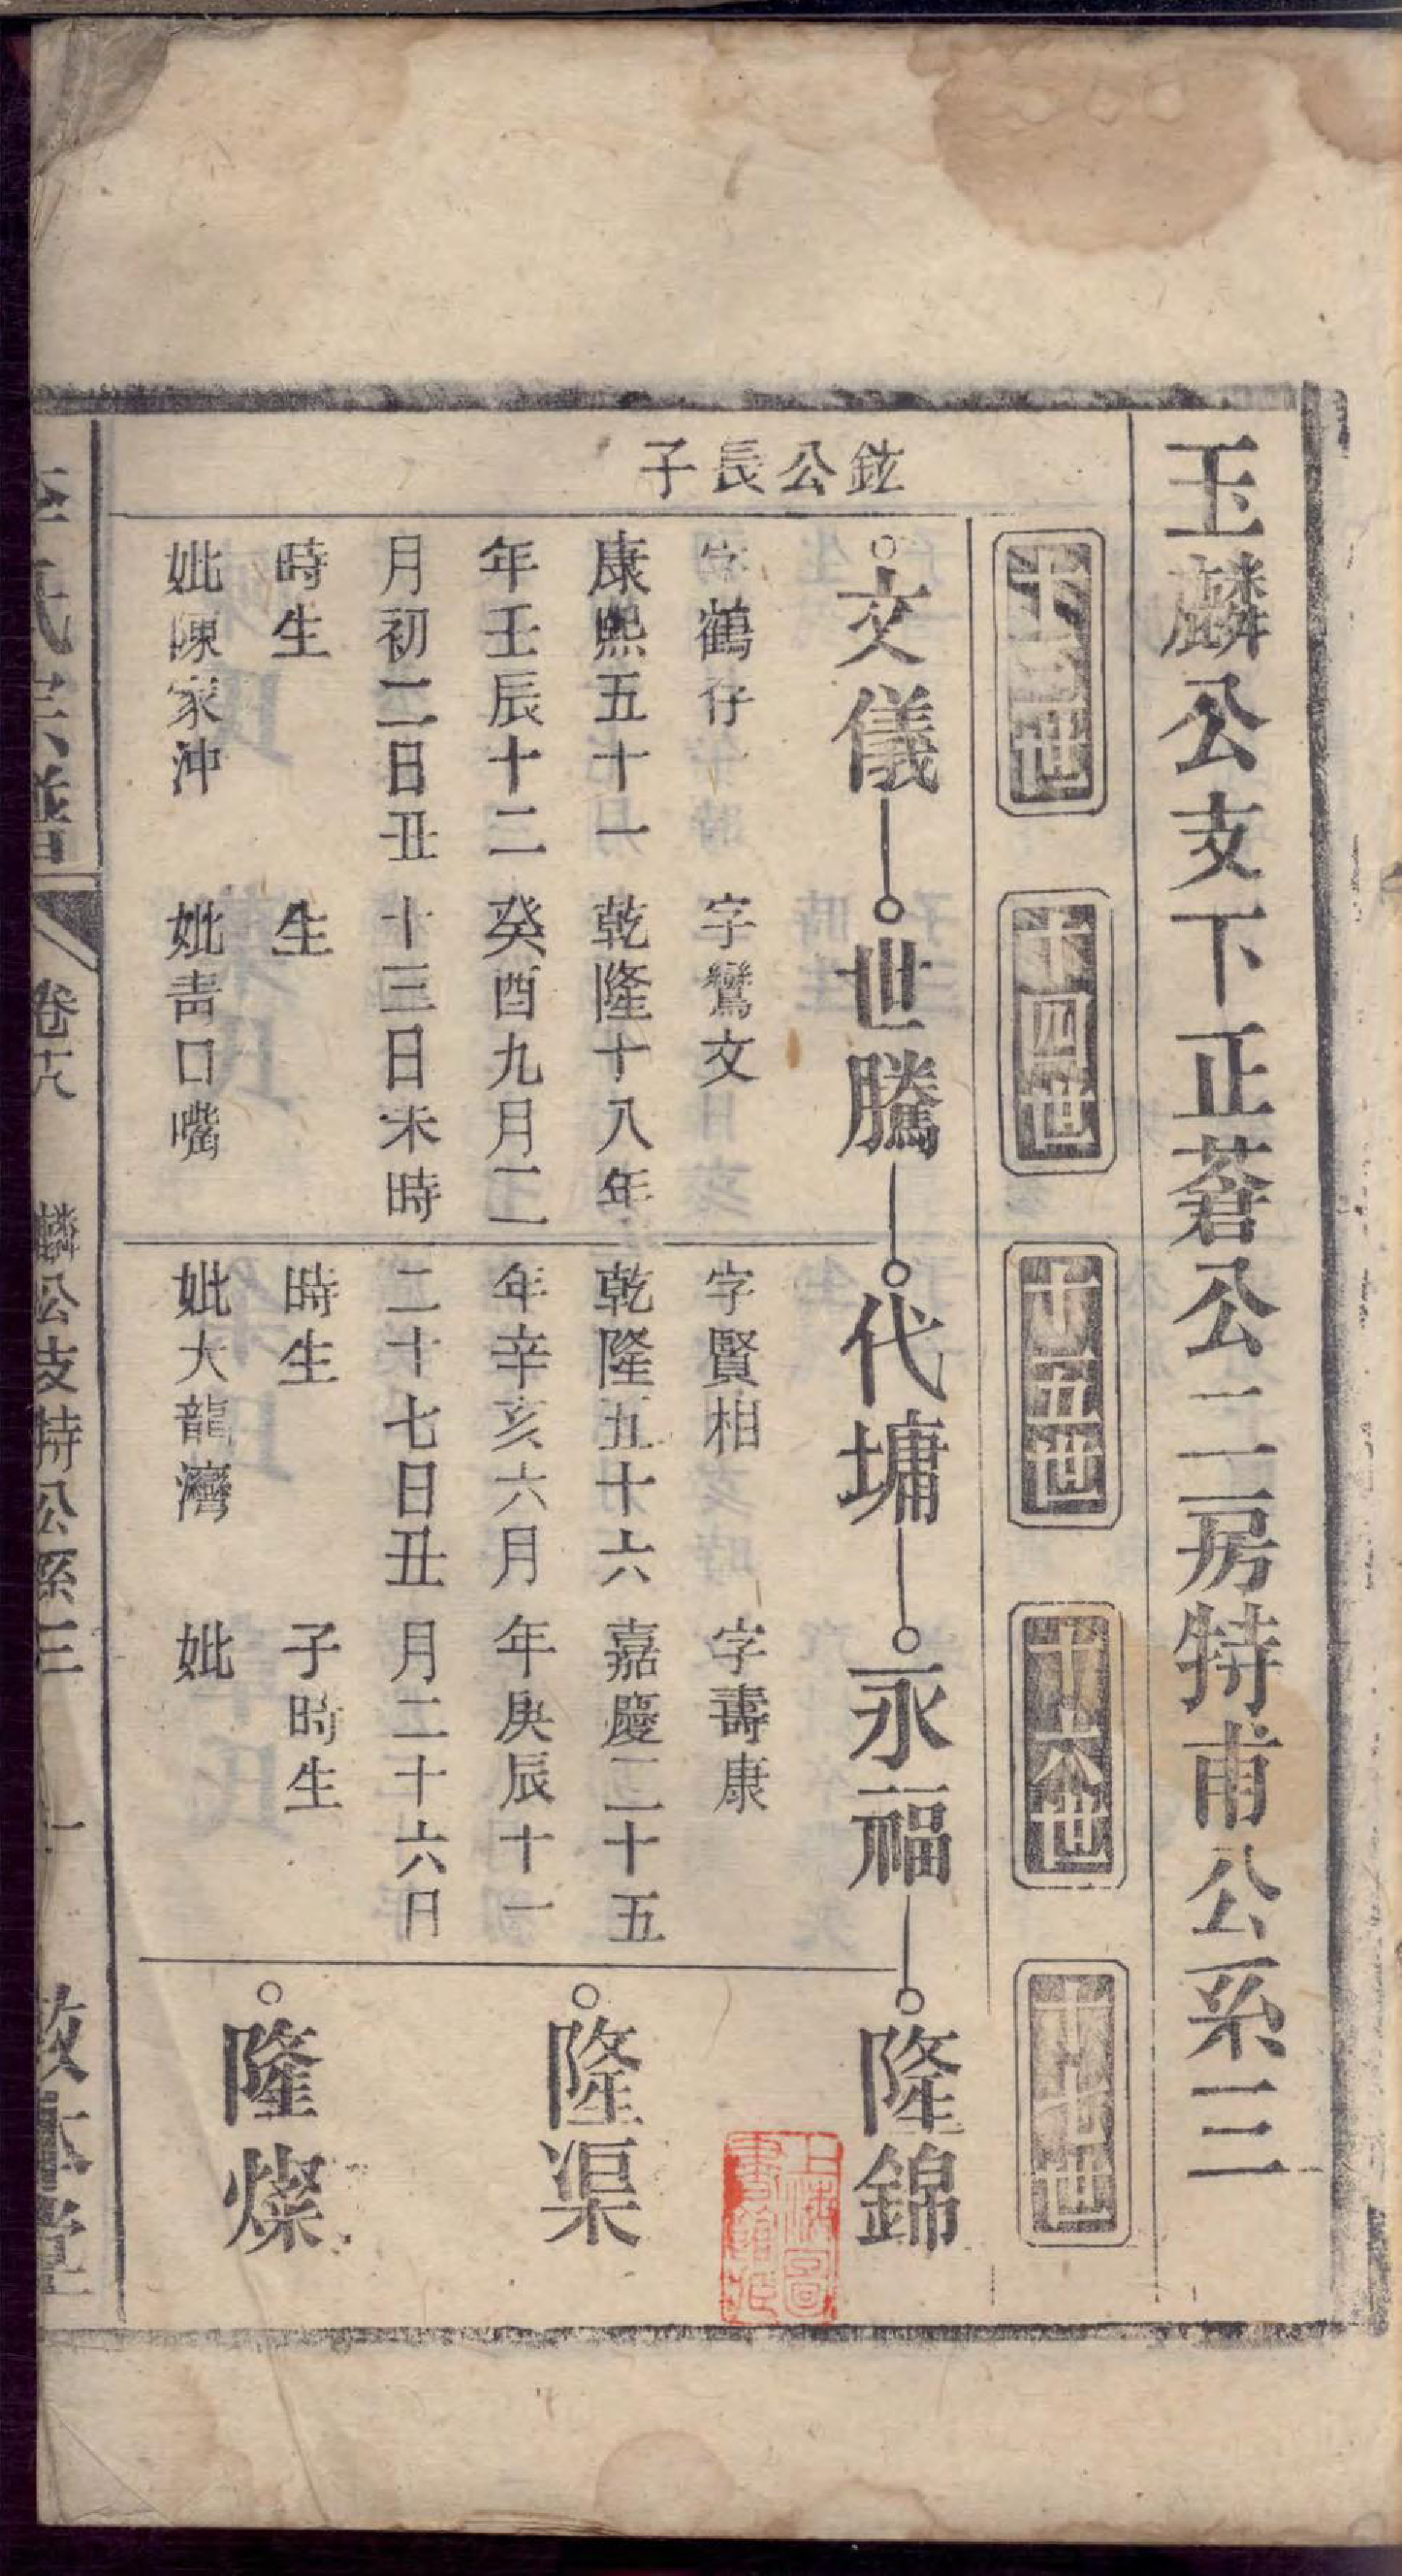 玉麟公支下正蒼公二房特甫公系三
十三世
十四世
十五世
十六世
十七世
鉉公長子
文儀
世騰
代墉
永福
隆錦
字鶴仔
康熙五十一
年壬辰十二
月初二日丑
時生
妣陳家沖
字鸞文
乾隆十八年
癸酉九月二
十三日未時
生
妣靑口嘴
字賢相
乾隆五十六
年辛亥六月
二十七日丑
時生
妣大龍灣
字壽康
嘉慶二十五
年庚辰十一
月二十六日
子時生
妣
隆渠
隆燦
李氏宗譜
卷十六
麟公支特公系三
一
敦本堂
上海圖書館藏